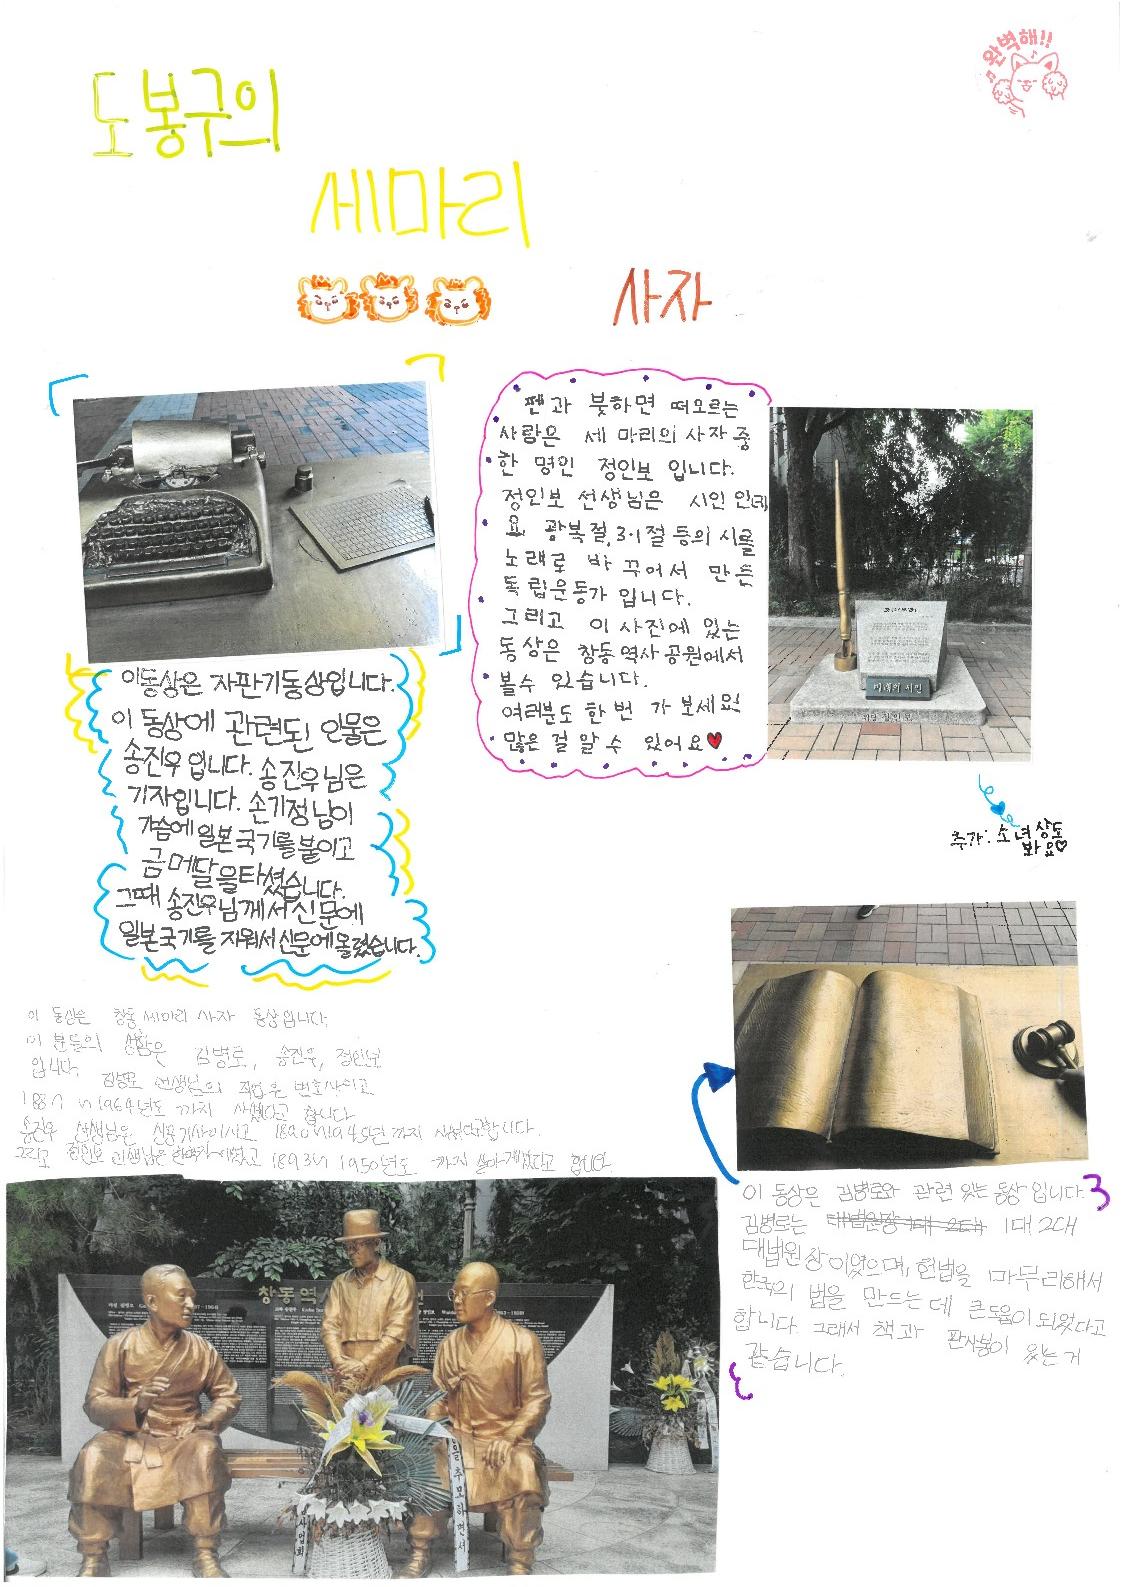 완벽해!!
도봉구의
세마리
사자
펜과 붓하면 떠오르는
사람은 세 마리의 사자 중
한 명인 정인보 입니다.
정인보 선생님은 시인 인데
요 광복절, 3·1절 등의 시를
노래로 바 꾸어서 만든
독립운동가 입니다.
그리고 이 사진에 있는
동상은 창동역사공원에서
볼수 있습니다.
여러분도 한 번 가 보세요!
많은 걸 알 수 있어요
미래의 시인
위당 정인보
추가: 소녀상도
봐요
이동상은 자판기동상입니다.
이 동상에 관련된 인물은
송진우 입니다. 송진우님은
기자입니다. 손기정님이
가슴에 일본국기를 붙이고
금메달을타셨습니다.
그때 송진우님께서신문에
일본국기를 지워서신문에올렸습니다.
이 동상은 창동 세마리 사자 동상입니다.
이 분들의 성함은 김병로, 송진우, 정인보
입니다. 김병로 선생님의 직업은 변호사이고
1887~1964년도 까지 사셨다고 합니다
송진우 선생님은 신문기사이시고 1890~1945년까지 사셨다고합니다.
그리고 정인보 선생님은 1893~1950년도 까지 살아계셨다고 합니다
이 동상은 김병로와 관련 있는 동상 입니다
김병로는 대법원장 1대 2대 1대 2대
대법원장이었으며, 헌법을 마무리해서
한국의 법을 만드는 데 큰도움이 되었다고
합니다. 그래서 책과 판사봉이 있는 거
같습니다.
창동역사
을 추모하면서
사업회